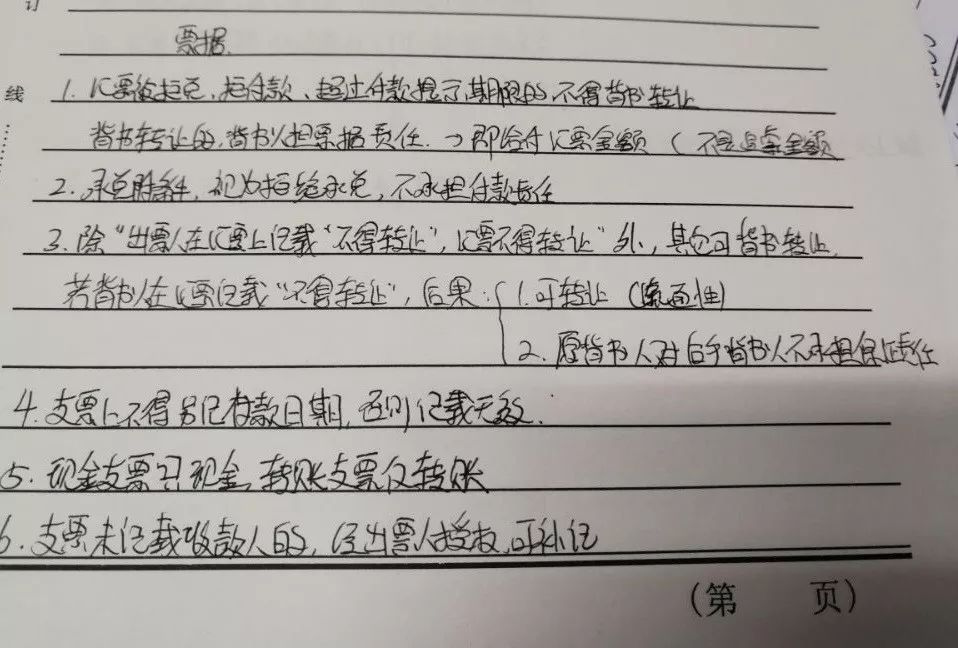 订
线
票据.
1. 汇票被拒兑、拒付款、超过付款提示期限的 不得背书转让
背书转让的,背书人担票据责任. → 即给付汇票金额 (不是追索金额
2. 承兑附条件, 视为拒绝承兑, 不承担付款责任
3. 除“出票人在汇票上记载“不得转让”, 汇票不得转让”外, 其它可背书转让.
若背书人在汇票记载“不得转让”, 后果: 1. 可转让 (流通性)
2. 原背书人对后手背书人不承担保证责任
4. 支票上不得另记付款日期, 否则记载无效.
5. 现金支票只现金, 转账支票仅转账
6. 支票未记载收款人的, 经出票人授权, 可补记
(第 页)